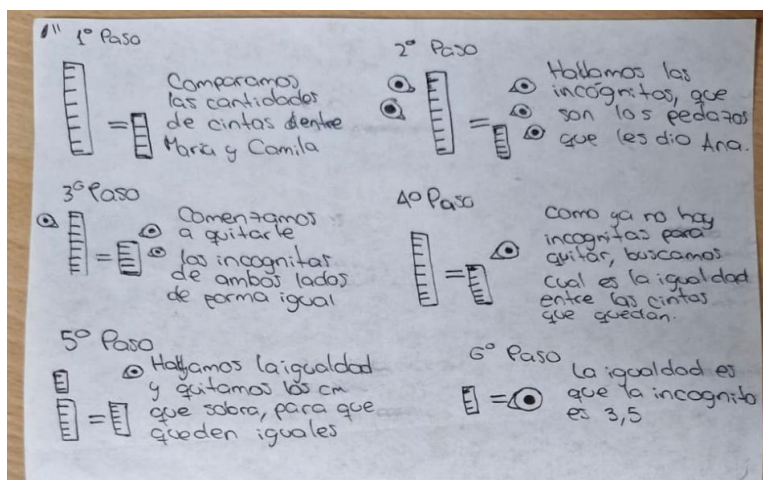 1"
1º Paso
Comparamos
las cantidades
de cintas dentre
María y Camila
2º Paso
Hallamos las
incógnitas, que
son los pedazos
que les dio Ana.
3º Paso
Comenzamos
a quitarle
las incognitas
de ambos lados
de forma igual
4º Paso
Como ya no hay
incognitas para
quitar, buscamos
cual es la igualdad
entre las cintas
que quedan.
5º Paso
Hallamos la igualdad
y quitamos los cm
que sobra, para que
queden iguales
6º Paso
La igualdad es
que la incognito
es 3,5